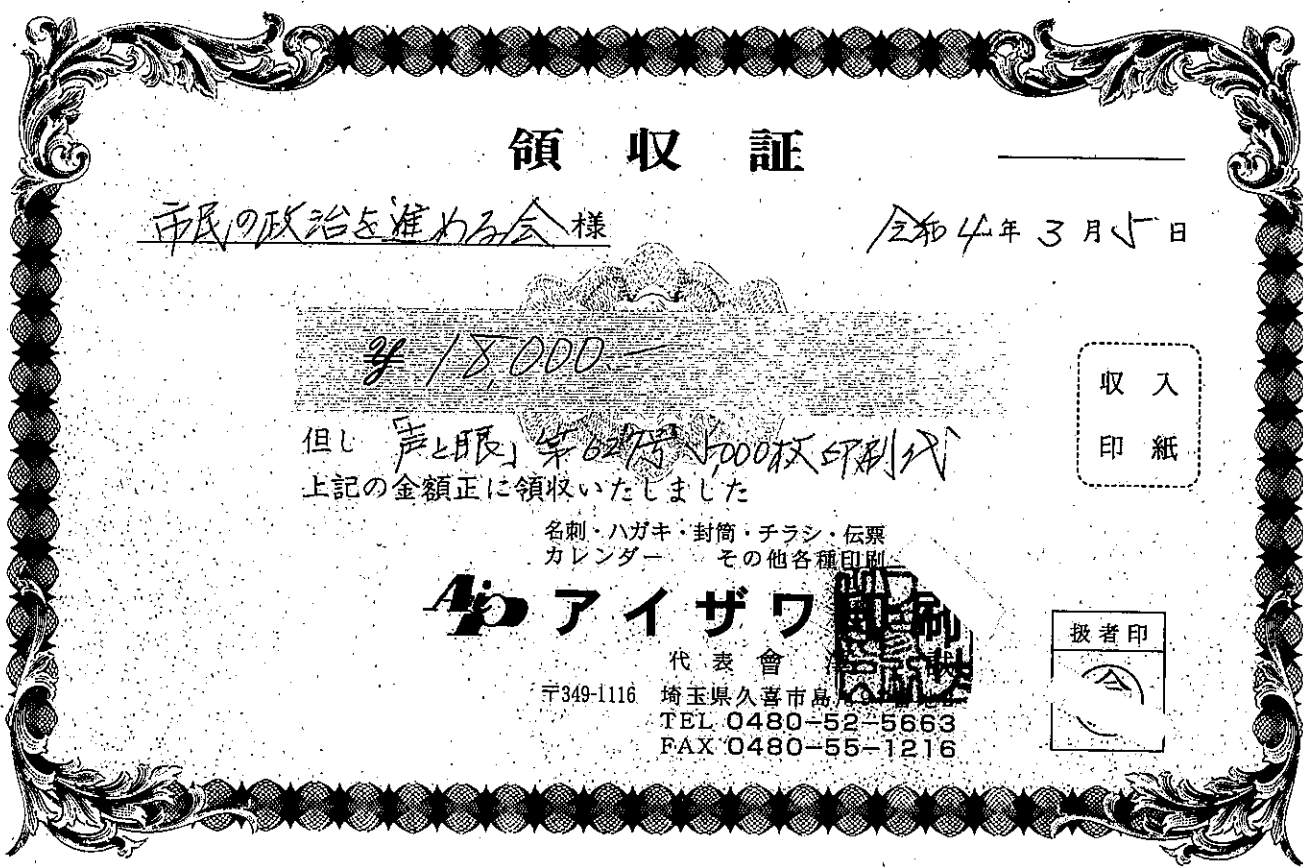 領収証
市民の政治を進める会様
令和4年3月5日
¥18,000.-
収入
印紙
但し 「声と眼」第627号 5,000枚印刷代
上記の金額正に領収いたしました
名刺・ハガキ・封筒・チラシ・伝票
カレンダー その他各種印刷
アイザワ印刷
代表 會
〒349-1116 埼玉県久喜市島
TEL 0480-52-5663
FAX 0480-55-1216
扱者印